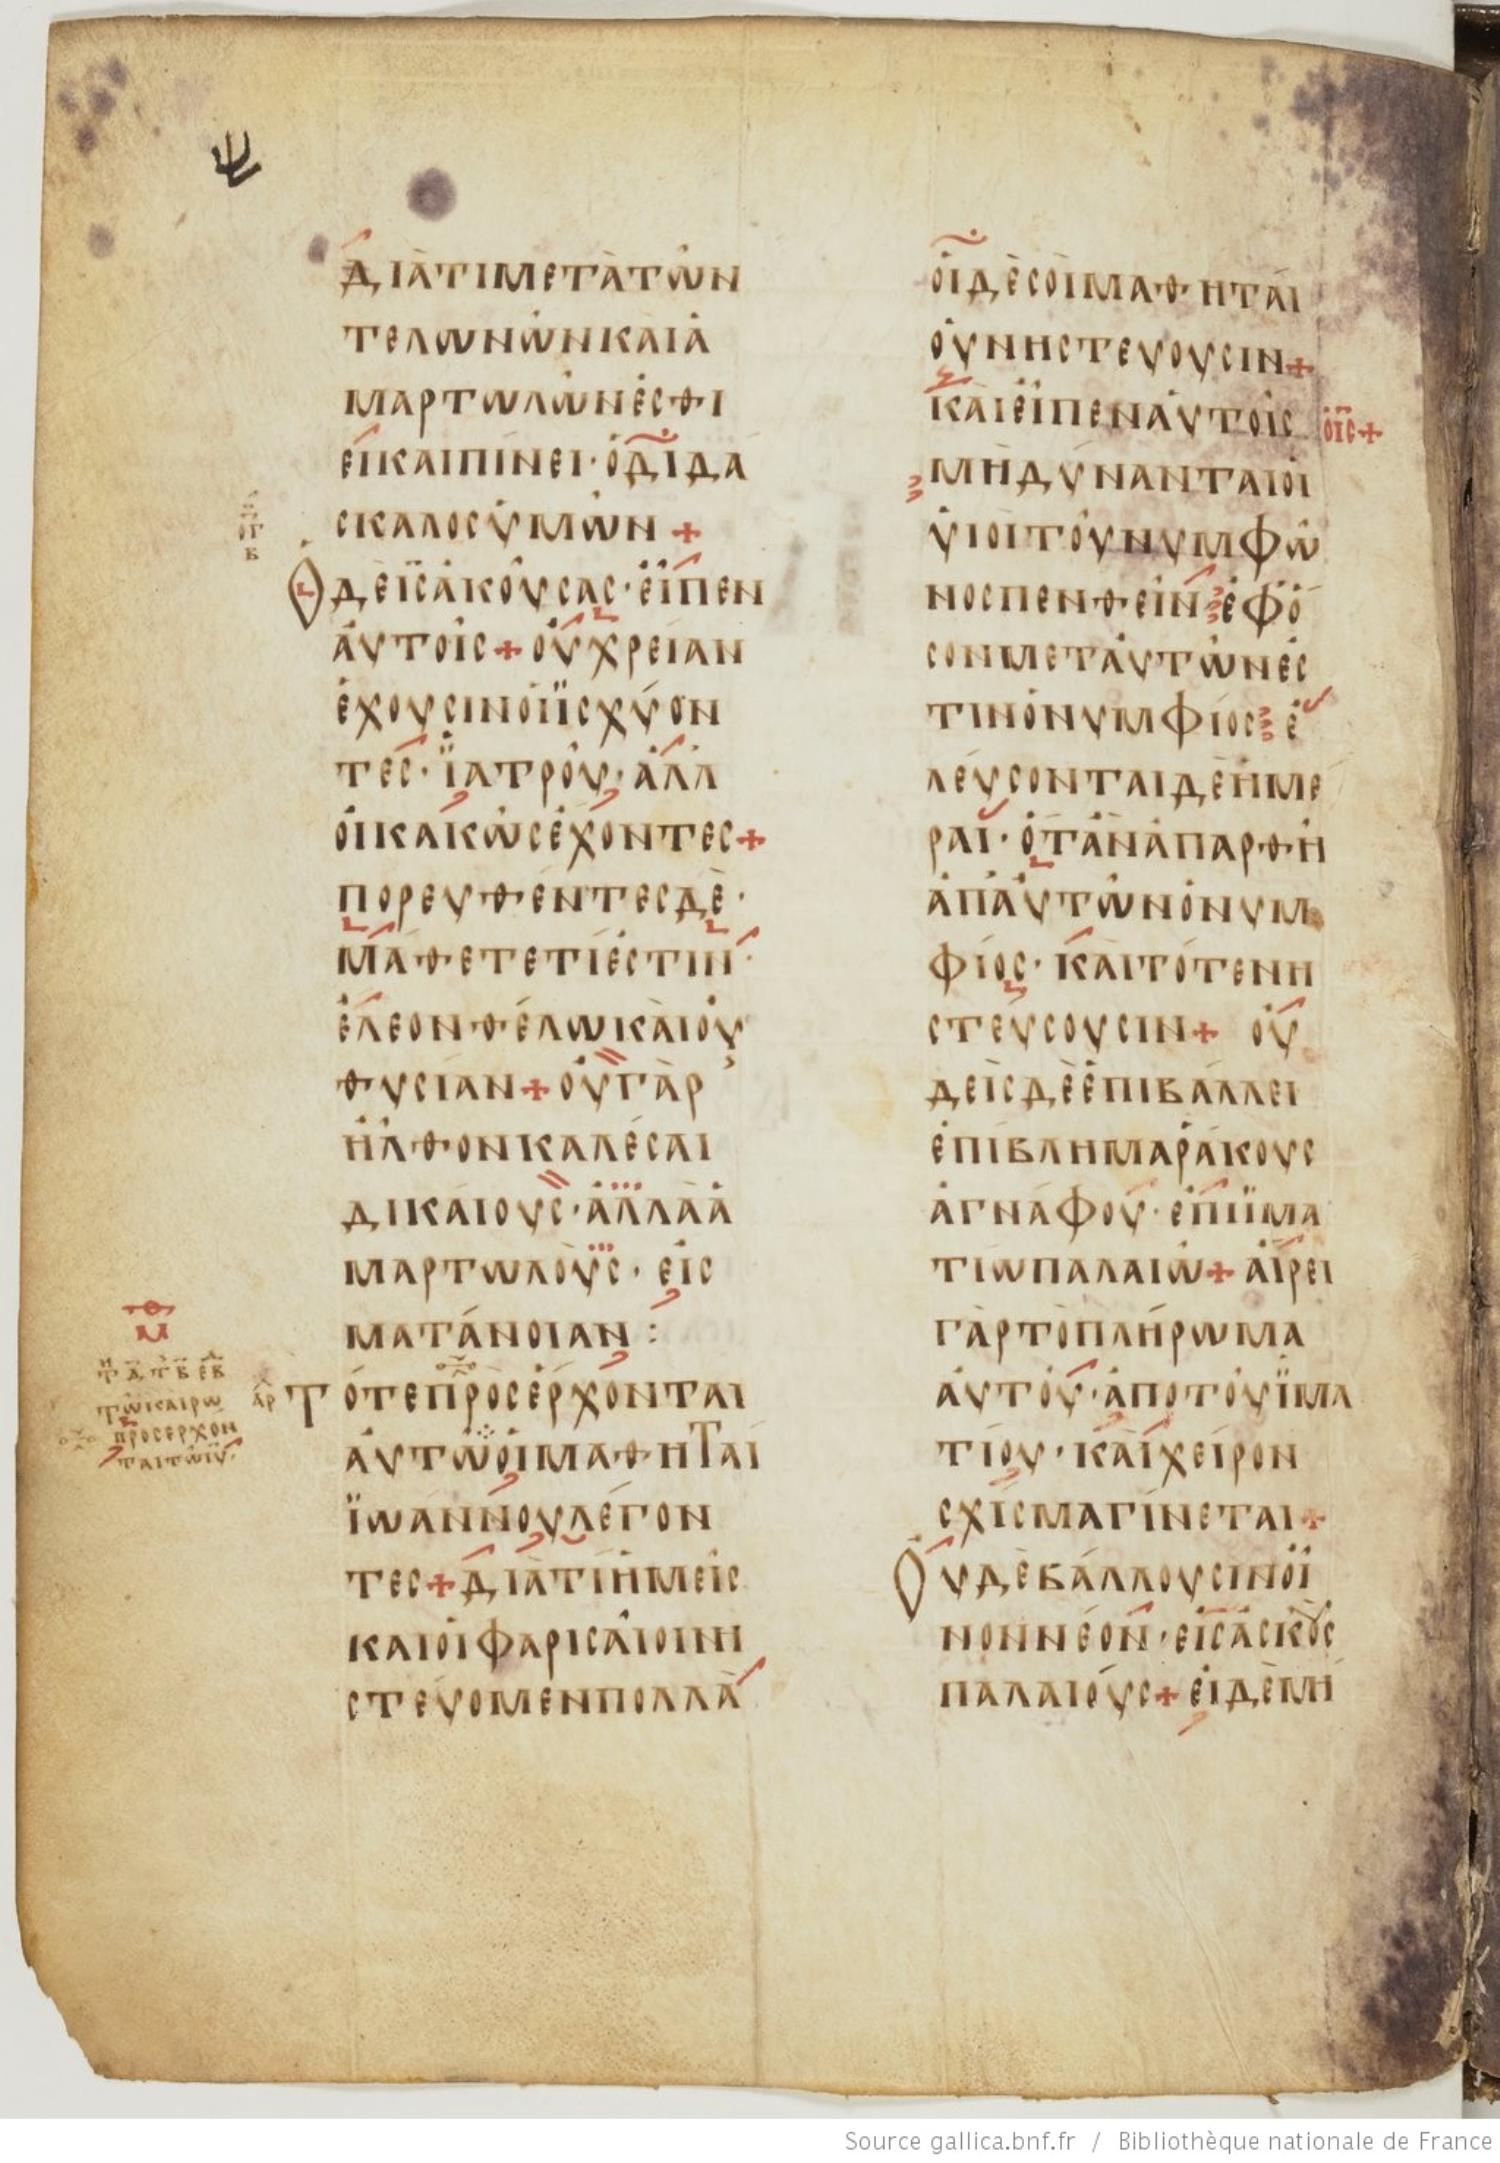 ΔΙᾺΤΙΜΕΤᾺΤῶΝ
ΤΕΛωΝῶΝΚΑῚἉ
ΜΑΡΤωΛῶΝἘΣΘΙ
ΕΙΚΑΙΠΊΝΕΙ·ὉΔΙΔΆ
ΣΚΑΛΟΣὙΜῶΝ+
ὉΔΕΙ͞ΣἈΚΟΎΣΑΣ·ΕἾΠΕΝ
ΑΥΤΟΙΣ+ΟΥΧΡΕΙΑΝ
ΕΧΟΥΣΙΝΟΙΪΣΧΥΟΝ
ΤΕΣ·ΪΑΤΡΟΥ·ΑΛΛ
ΟΙΚΑΚωΣΕΧΟΝΤΕΣ+
ΠΟΡΕΥΘΕΝΤΕΣΔΕ·
ΜΑΘΕΤΕΤΙΕΣΤΙΝ·
ΕΛΕΟΝΘΕΛωΚΑΙΟΥ
ΘΥΣΙΑΝ+ΟΥΓΑΡ
ΗΛΘΟΝΚΑΛΕΣΑΙ
ΔΙΚΑΙΟΥΣ·ΑΛΛΑΑ
ΜΑΡΤωΛΟΥΣ·ΕΙΣ
ΜΑΤΑΝΟΙΑΝ:
ΑΡ ΤΟΤΕΠΡΟΣΕΡΧΟΝΤΑΙ
ΑΥΤωΟΙΜΑΘΗΤΑΙ
ΪωΑΝΝΟΥΛΕΓΟΝ
ΤΕΣ+ΔΙΑΤΙΗΜΕΙΣ
ΚΑΙΟΙΦΑΡΙΣΑΙΟΙΝΗ
ΣΤΕΥΟΜΕΝΠΟΛΛΑ
ΤωΚΑΙΡω
ΠΡΟΣΕΡΧΟΝ
ΤΑΙΤωΙΥ·
ΟΙΔΕΣΟΙΜΑΘΗΤΑΙ
ΟΥΝΗΣΤΕΥΟΥΣΙΝ+
ΚΑΙΕΙΠΕΝΑΥΤΟΙΣ ΟΙΣ+
ΜΗΔΥΝΑΝΤΑΙΟΙ
ΥΙΟΙΤΟΥΝΥΜΦω
ΝΟΣΠΕΝΘΕΙΝΕΦΟ
ΣΟΝΜΕΤΑΥΤωΝΕΣ
ΤΙΝΟΝΥΜΦΙΟΣΕ
ΛΕΥΣΟΝΤΑΙΔΕΗΜΕ
ΡΑΙ·ΟΤΑΝΑΠΑΡΘΗ
ΑΠΑΥΤωΝΟΝΥΜ
ΦΙΟΣ·ΚΑΙΤΟΤΕΝΗ
ΣΤΕΥΣΟΥΣΙΝ+ ΟΥ
ΔΕΙΣΔΕΕΠΙΒΑΛΛΕΙ
ΕΠΙΒΛΗΜΑΡΑΚΟΥΣ
ΑΓΝΑΦΟΥ·ΕΠΙΪΜΑ
ΤΙωΠΑΛΑΙω+ΑΙΡΕΙ
ΓΑΡΤΟΠΛΗΡωΜΑ
ΑΥΤΟΥ·ΑΠΟΤΟΥΪΜΑ
ΤΙΟΥ·ΚΑΙΧΕΙΡΟΝ
ΣΧΙΣΜΑΓΙΝΕΤΑΙ+
ΟΥΔΕΒΑΛΛΟΥΣΙΝΟΙ
ΝΟΝΝΕΟΝ·ΕΙΣΑΣΚΟΥΣ
ΠΑΛΑΙΟΥΣ+ΕΙΔΕΜΗ
Source gallica.bnf.fr / Bibliothèque nationale de France